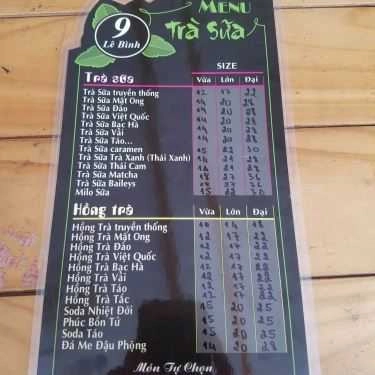 MENU
9
Lê Bình
Trà Sữa
SIZE
Trà sữa Vừa Lớn Đại
Trà Sữa truyền thống 12 17 22
Trà Sữa Mật Ong 14 20 28
Trà Sữa Đào 14 20 28
Trà Sữa Việt Quốc 14 20 28
Trà Sữa Bạc Hà 14 20 28
Trà Sữa Vải 14 20 28
Trà Sữa Táo... 14 20 28
Trà Sữa caramen 15 22 30
Trà Sữa Trà Xanh (Thái Xanh) 14 21 28
Trà Sữa Thái Cam 14 21 28
Trà Sữa Matcha 18 27 36
Trà Sữa Baileys 18 27 36
Milo Sữa 15 22 30
Hồng trà Vừa Lớn Đại
Hồng Trà truyền thống 10 14 18
Hồng Trà Mật Ong 12 17 22
Hồng Trà Đào 12 17 22
Hồng Trà Việt Quốc 12 17 22
Hồng Trà Bạc Hà 12 17 22
Hồng Trà Vải 12 17 22
Hồng Trà Táo 12 17 22
Hồng Trà Tắc 12 17 22
Soda Nhiệt Đới 15 20 25
Phúc Bồn Tử 15 20 25
Soda Táo 15 20 25
Đá Me Đậu Phộng 14 20 28
Món Tự Chọn